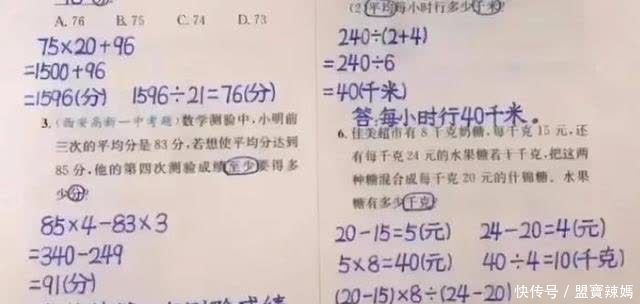 A. 76 B. 75 C. 74 D. 73
75×20+96
=1500+96
=1596(分) 1596÷21=76(分)
3.(西安高新一中考题)数学测验中,小明前
三次的平均分是 83 分,若想使平均分达到
85 分,他的第四次测验成绩至少要得多
少分?
85×4-83×3
=340-249
=91(分)
(2)平均每小时行多少千米?
240÷(2+4)
=240÷6
=40(千米)
答:每小时行40千米。
6. 佳美超市有 8 千克奶糖,每千克 15 元,还
有每千克 24 元的水果糖若干千克,把这两
种糖混合成每千克 20 元的什锦糖。水果
糖有多少千克?
20-15=5(元) 24-20=4(元)
5×8=40(元) 40÷4=10(千克)
(20-15)×8÷(24-20)
快传号/盟寶辣媽